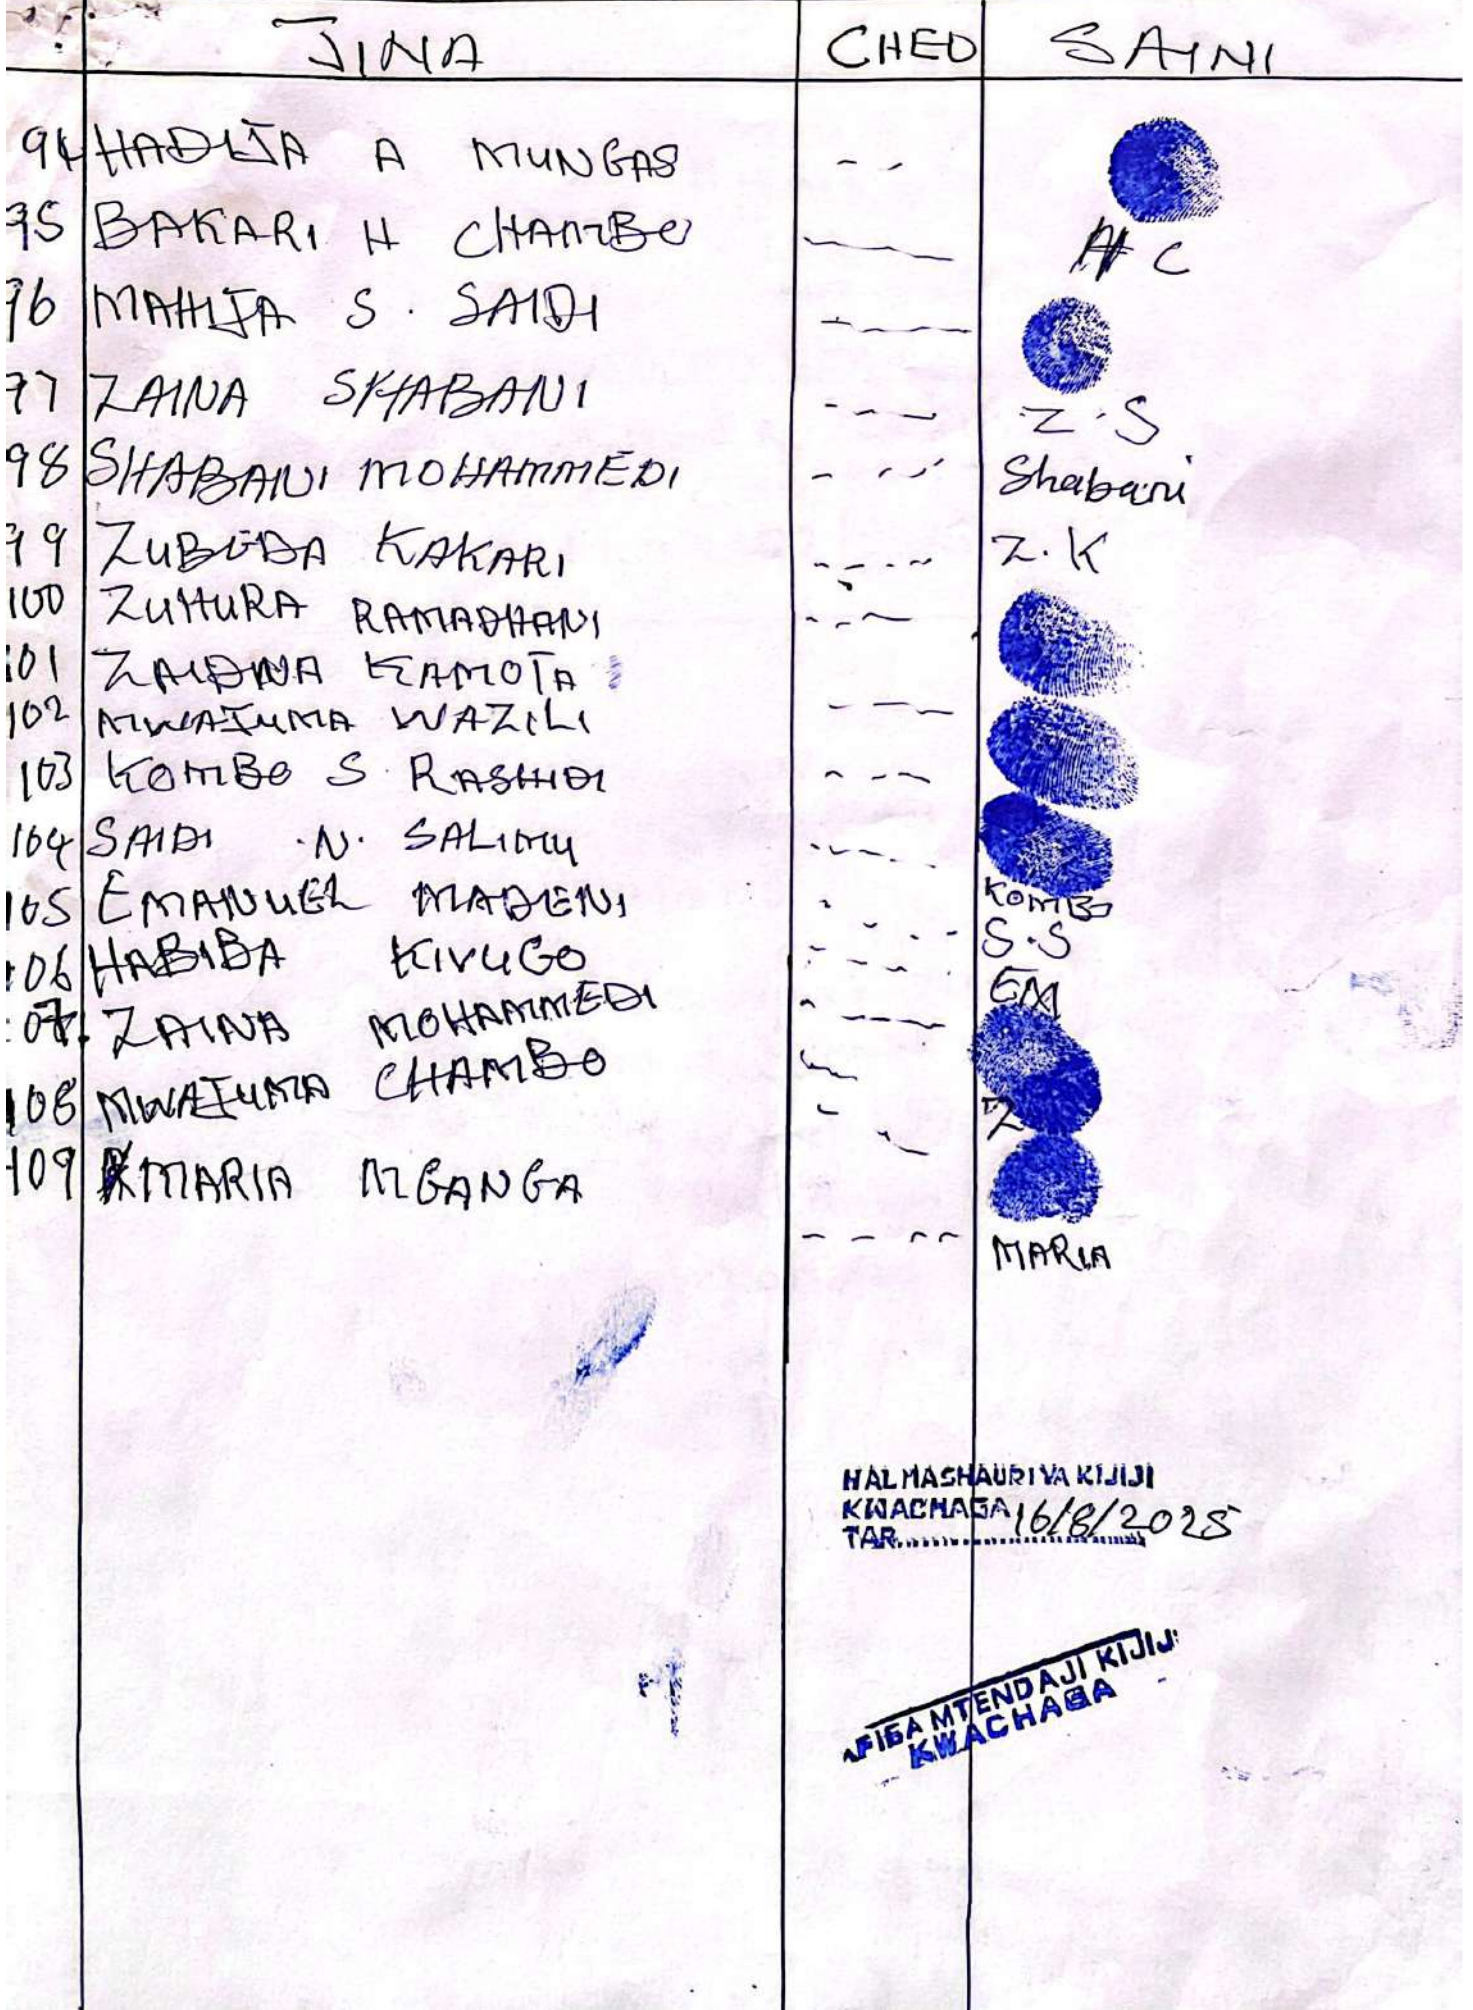 JINA CHEO SAINI
94 HADIJA A MUNGAS
95 BAKARI H CHAMBO
H C
96 MAHIJA S. SAIDI
97 ZAINA SHABANI Z.S
98 SHABANI MOHAMMEDI Shabani
99 ZUBEDA KAKARI Z.K
100 ZUHURA RAMADHANI
101 ZAIDNA KAMOTA
102 MWAJUMA WAZILI
103 KOMBO S. RASHIDI
104 SAIDI .N. SALIMU
105 EMANUEL MADENI KOMBO
106 HABIBA KIVUGO S.S
107. ZAINA MOHAMMEDI EM
108 MWAJUMA CHAMBO Z
109 MARIA MGANGA
MARIA
HALMASHAURI YA KIJIJI
KWACHAGA 16/8/2025
TAR..........
AFISA MTENDAJI KIJIJI
KWACHAGA